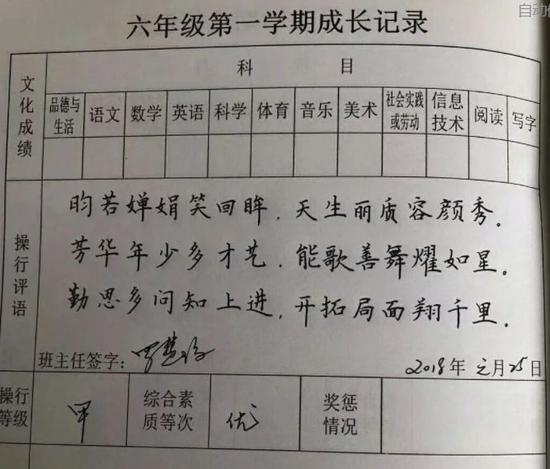 自动
六年级第一学期成长记录
文化成绩
科 目
品德与生活 语文 数学 英语 科学 体育 音乐 美术 社会实践或劳动 信息技术 阅读 写字
操行评语
昀若婵娟笑回眸，天生丽质容颜秀。
芳华年少多才艺，能歌善舞耀如星。
勤思多问知上进，开拓局面翔千里。
班主任签字：
2018年元月25日
操行等级 甲 综合素质等次 优 奖惩情况